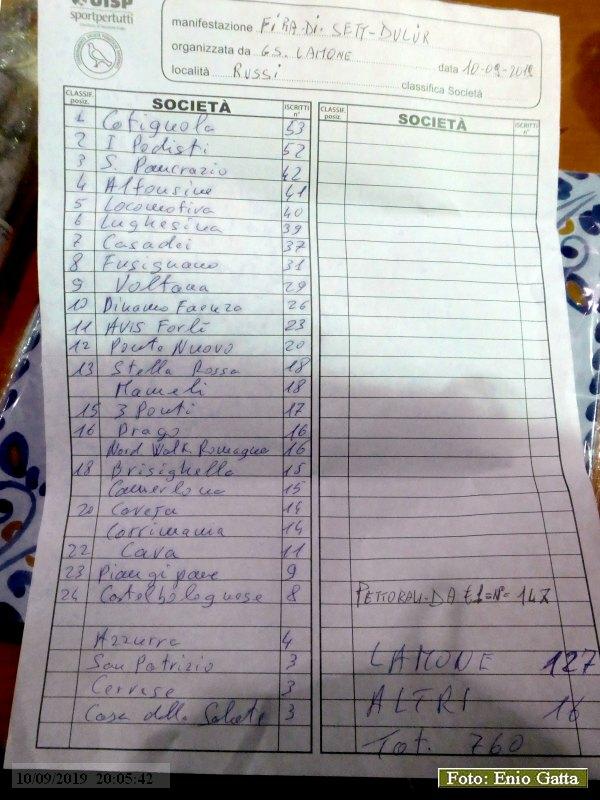 UISP
sportpertutti
manifestazione FIRA-DI-SETT-DULUR
organizzata da G.S. LAMONE data 10-09-2019
località RUSSI classifica Società
CLASSIF. posiz. SOCIETÀ ISCRITTI n° CLASSIF. posiz. SOCIETÀ ISCRITTI n°
1 Cotignola 53
2 I Podisti 52
3 S. Pancrazio 42
4 Alfonsine 41
5 Locomotiva 40
6 Lughesina 39
7 Casadei 37
8 Fusignano 31
9 Voltana 29
10 Dinamo Faenza 26
11 AVIS Forlì 23
12 Ponte Nuovo 20
13 Stella Rossa 18
Mameli 18
15 3 Ponti 17
16 Drago 16
Nord Walk. Romagna 16
18 Brisighella 15
Camerlona 15
20 Covefa 14
Corrimania 14
22 Cava 11
23 Piangipane 9
24 Castelbolognese 8 PETTORALI-DA €1=N°= 147
Azzurra 4
San Patrizio 3 LAMONE 127
Cervese 3 ALTRI 16
Casa della Salute 3 Tot. 760
10/09/2019 20:05:42
Foto: Enio Gatta